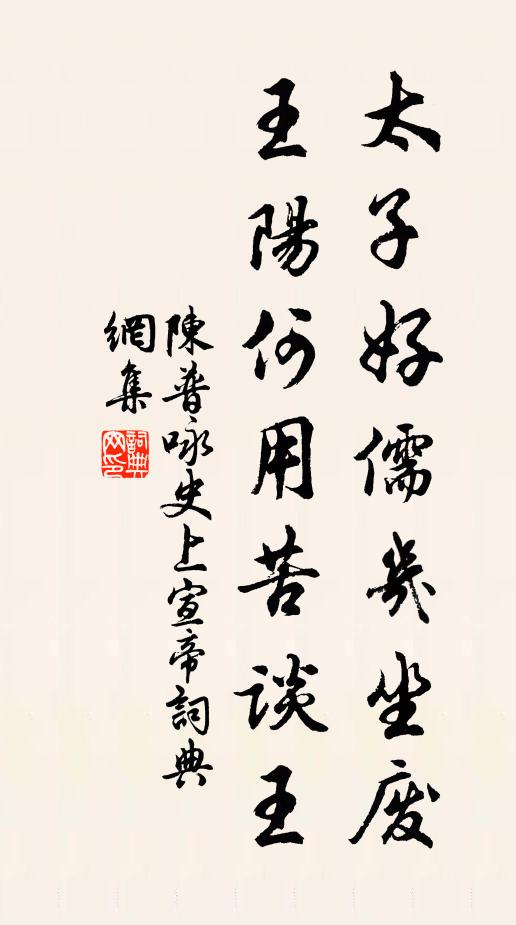 太子好儒幾坐廢
王陽何用苦談王
陳普咏史上宣帝詞典
網集
詞典网印